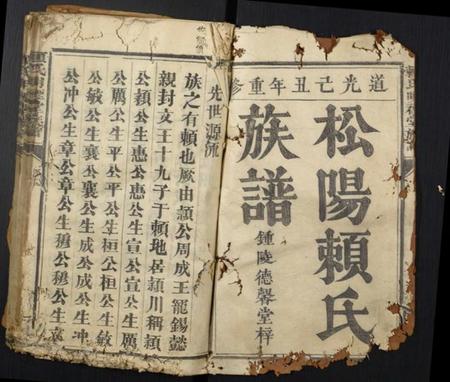 道光己丑年重修
松陽賴氏
族譜
鍾陵德馨堂梓
先世源流
族之有頼也厥由頴公周成王寵錫懿
親封文王十九子于頼地居頴川稱頴
公頴公生惠公惠公生宣公宣公生厲
公厲公生平公平公生桓公桓公生敏
公敏公生襄公襄公生成公成公生冲
公冲公生章公章公生